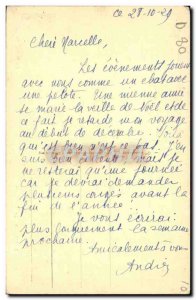 Ce 28-10-29
Chère Marcelle,
Les évènements jouent
avec nous comme un chat avec
une pelote. Une mienne amie
se marie la veille de Noël et de
ce fait je retarde mon voyage
au début de decembre. Voilà
que n'est pas
suis bon mais je
ne resterai qu'une journée
car je devrai demander
plusieurs congés avant la
fin de l'année.
Je vous écrirai
plus longuement la semaine
prochaine.
Amicalement à vous
André